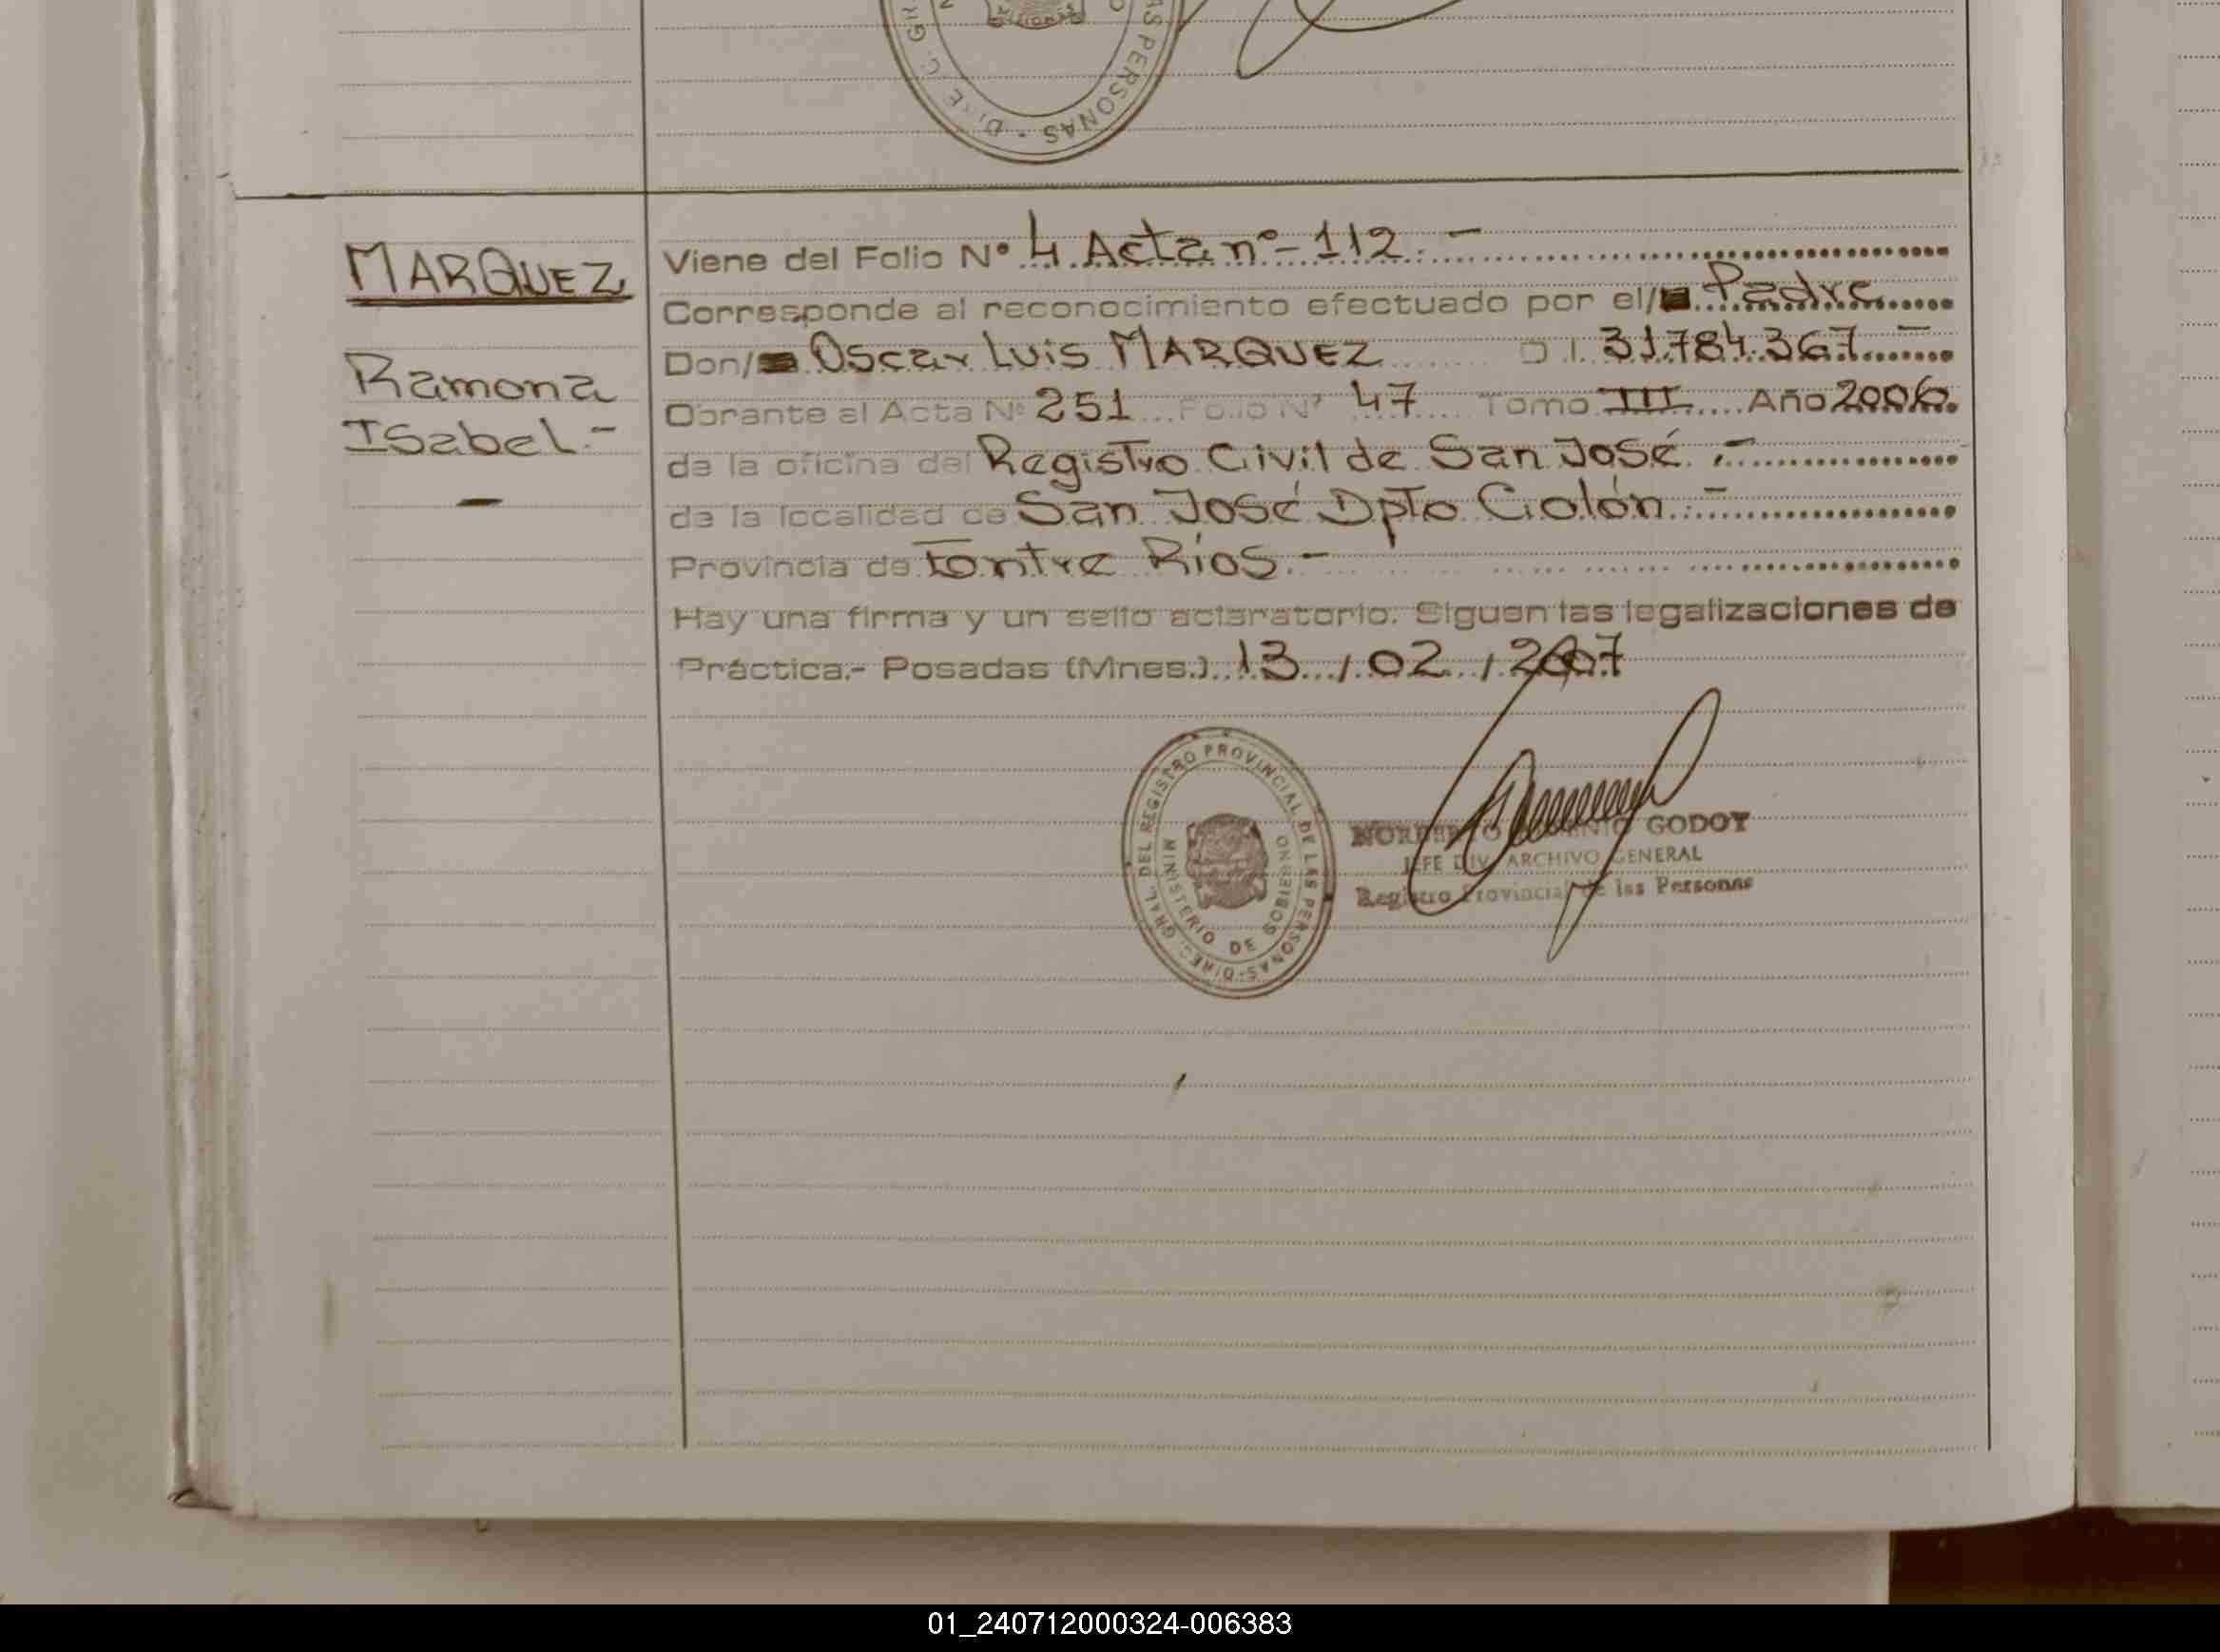 AS PERSONAS - DIRE C. GR
MARQUEZ
Ramona
Isabel.-
-
Viene del Folio Nº 4 Acta nº 112.-
Corresponde al reconocimiento efectuado por el/ Padre
Don/ Oscar Luis MARQUEZ D.I. 31.784.367.-
Obrante al Acta Nº 251 Folio Nº 47 Tomo III Año 2006.
de la oficina del Registro Civil de San José.-
de la localidad de San José Dpto Colón.-
Provincia de Entre Ríos.-
Hay una firma y un sello aclaratorio. Siguen las legalizaciones de
Práctica.- Posadas (Mnes.) 13 / 02 / 2007
DEL REGISTRO PROVINCIAL DE LAS PERSONAS-DIREC. GRAL.
MINISTERIO DE GOBIERNO
NORBERTO GODOY
JEFE DIV. ARCHIVO GENERAL
Registro Provincial de las Personas
01_240712000324-006383